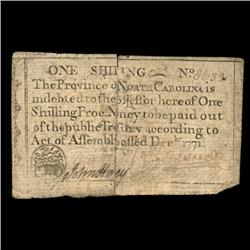 ONE SHILLING No. 8632
The Province of NORTH CAROLINA is
indebted to the Possessor hereof One
Shilling Proc. Money to be paid out
of the public Treasury according to
Act of Assembly passed Decr. 1771.
John Harvey